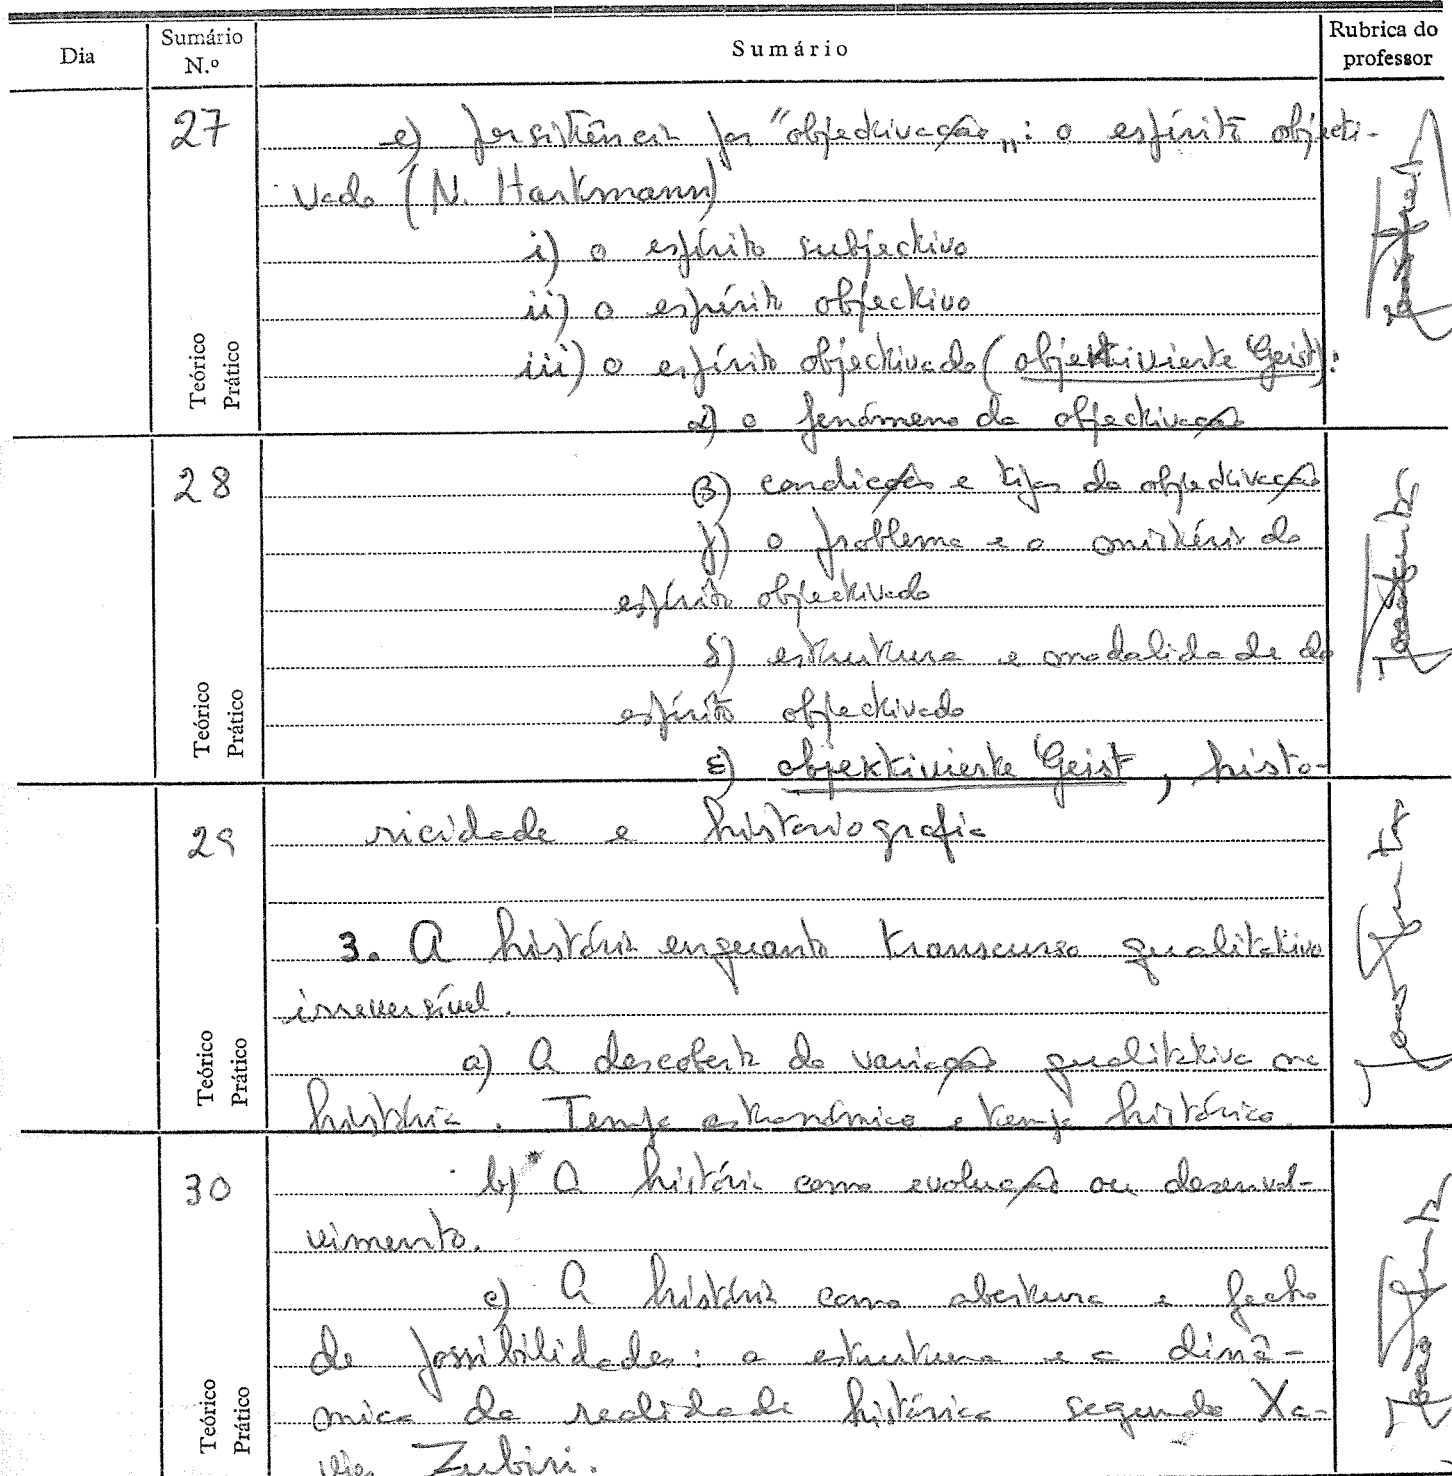 Dia
Sumário N.º
Sumário
Rubrica do professor
27
e) persistência por "objectivação": o espírito objecti-
vado (N. Hartmann)
i) o espírito subjectivo
ii) o espírito objectivo
iii) o espírito objectivado (objektivierte Geist):
α) o fenómeno da objectivação
Teórico
Prático
28
β) condições e tipos da objectivação
γ) o problema e o mistério do
espírito objectivado
δ) estrutura e modalidade do
espírito objectivado
ε) objektivierte Geist, histo-
Teórico
Prático
29
ricidade e historiografia
3. A história enquanto transcurso qualitativo
irreversível.
a) A descoberta da variação qualitativa na
história. Tempo astronómico e tempo histórico.
Teórico
Prático
30
b) A história como evolução ou desenvol-
vimento.
c) A história como abertura e fecho
de possibilidades: a estrutura e a dinâ-
mica da realidade histórica segundo Xa-
vier Zubiri.
Teórico
Prático